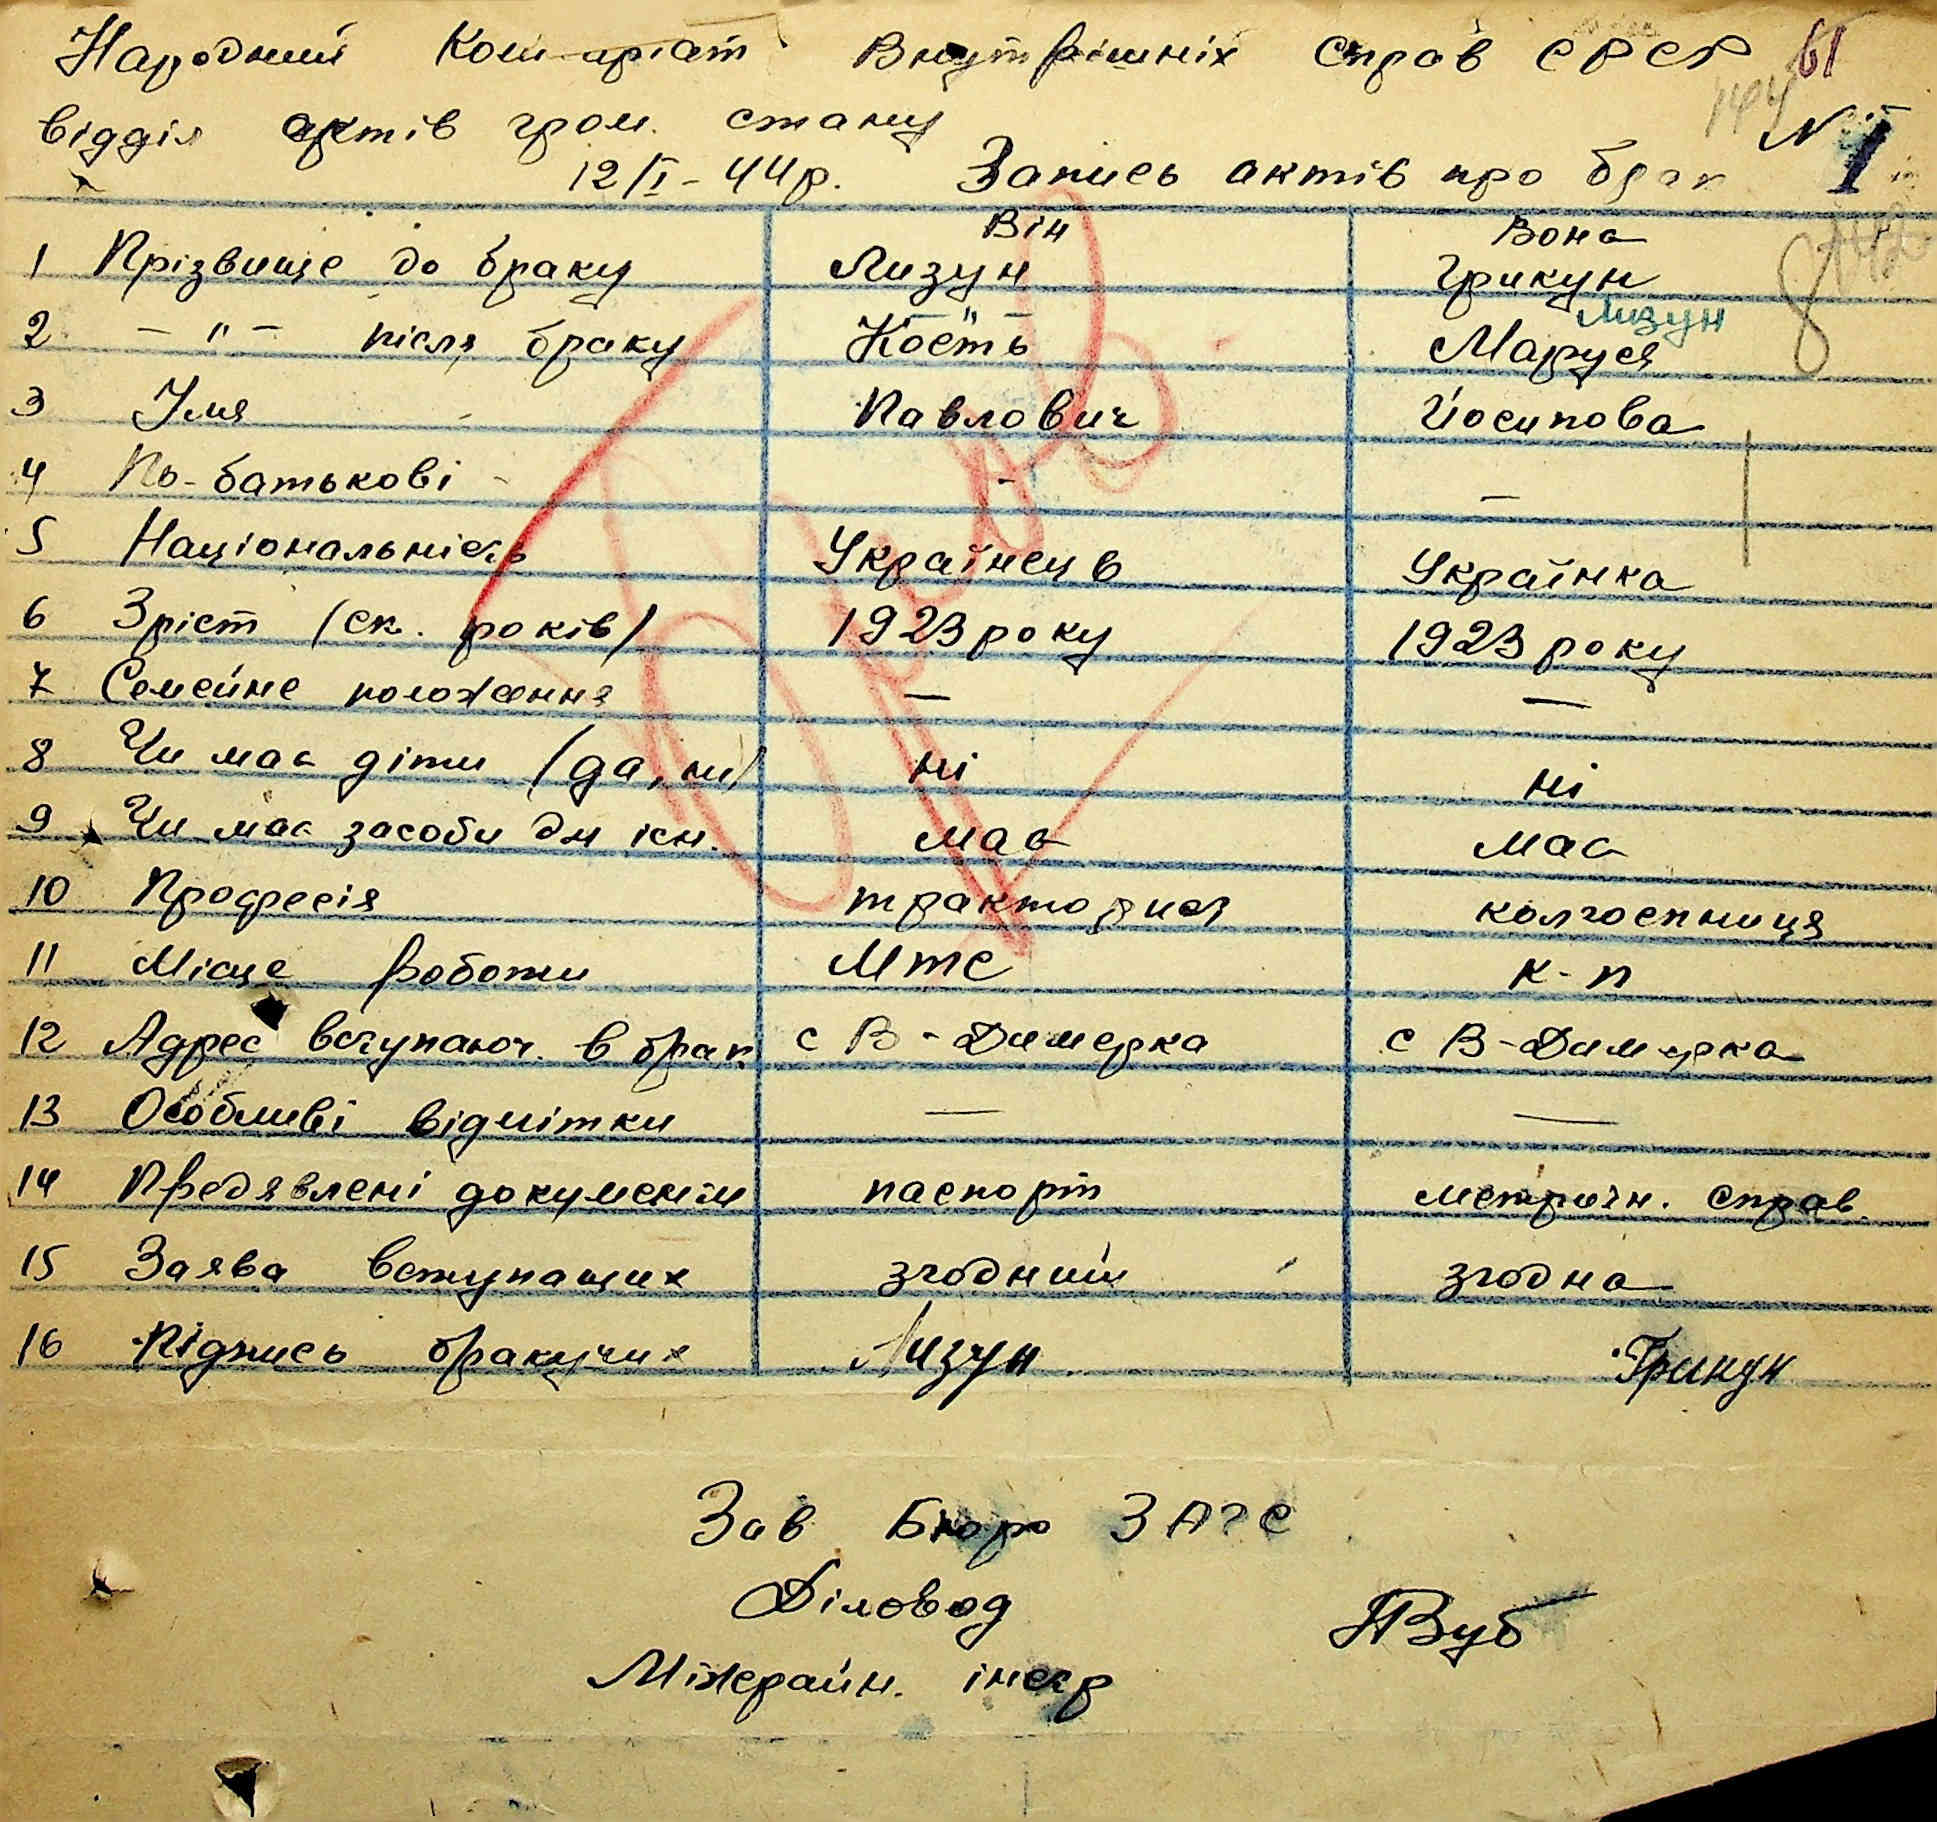 Народний Комісаріат Внутрішніх Справ СРСР 61
144
відділ актів гром. стану № 1
12/I-44р. Запись актів про брак
Він Вона
1 Прізвище до браку Лизун Грикун
2 - " - після браку - " - Лизун
Кость Маруся
3 Імя Павлович Йосипова
4 По-батькові - -
5 Національність Українець Українка
6 Зріст (ск. років) 1923 року 1923 року
7 Семейне положення - -
8 Чи має діти (да, ни) ні ні
9 Чи має засоби для існ. має має
10 Професія тракторист колгоспниця
11 Місце роботи МТС к-п
12 Адрес вступаюч. в брак с В-Димерка с В-Димерка
13 Особливі відмітки - -
14 Предявлені документи паспорт метричн. справ.
15 Заява вступащих згодний згодна
16 Підпись бракучих Лизун Грикун
Зав Бюро ЗАГС
Діловод
Міжрайн. інсп